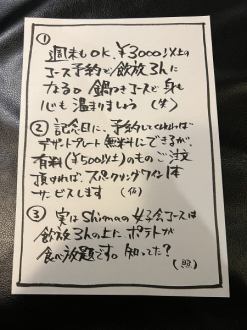 ①
週末もOK、¥3000以上の
コース予約で飲放3hんに
なる。鍋つきコースで身も
心も温まりましょう (生)
② 記念日に、予約してくれれば
デザートプレート無料にできるが、
有料(¥500以上)のものご注文
頂ければ、スパークリングワイン1本
サービスします (仏)
③ 実はShimaの女子会コースは
飲放3hんの上に ポテトが
食べ放題です。知ってた?
(照)